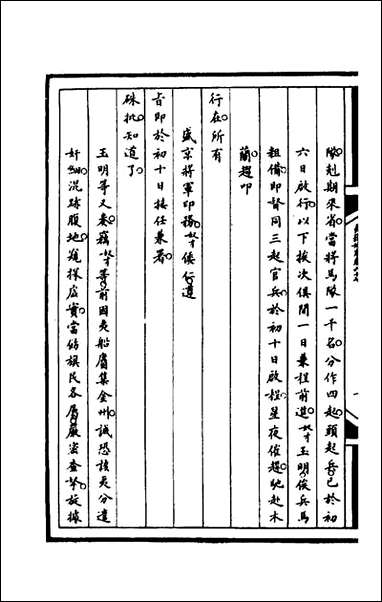 隊剋期來省當將馬隊一千名分作四起頭起兵已於初
六日啟行以下挨次俱間一日兼程前進奴才玉明俟兵馬
粗備即督同三起官兵於初十日啟程星夜催趲馳赴木
蘭趨叩
行在所有
盛京將軍印務奴才倭仁遵
旨即於初十日接任兼署
硃批知道了
玉明等又奏竊奴才等前因夷船廥集金州誠恐該夷分遣
奸細混跡腹地窺探虛實當飭旗民各屬嚴密查拏旋據